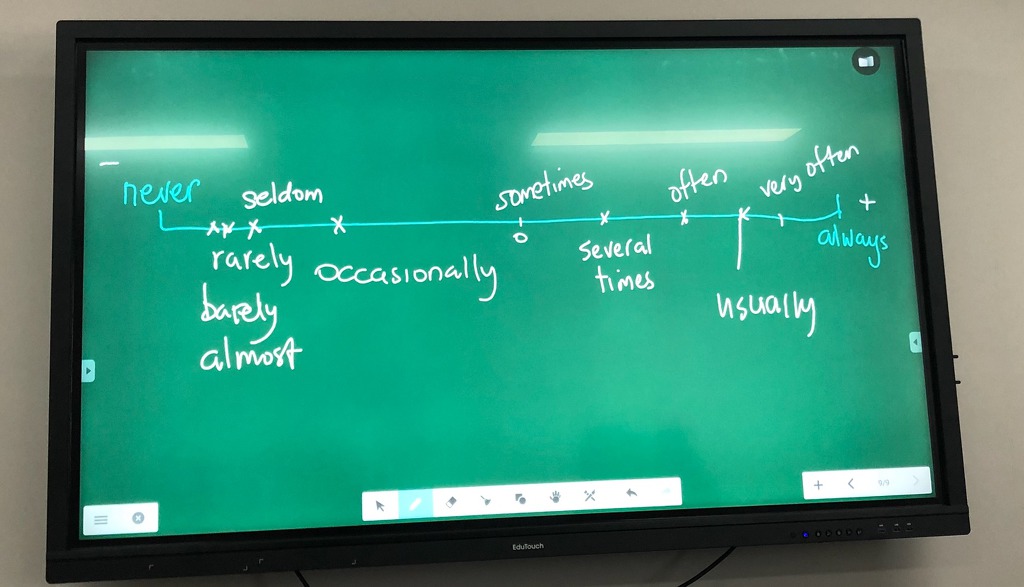 −
never
seldom
sometimes
often
very often
+
always
0
rarely
occasionally
several
times
barely
usually
almost
9/9
EduTouch